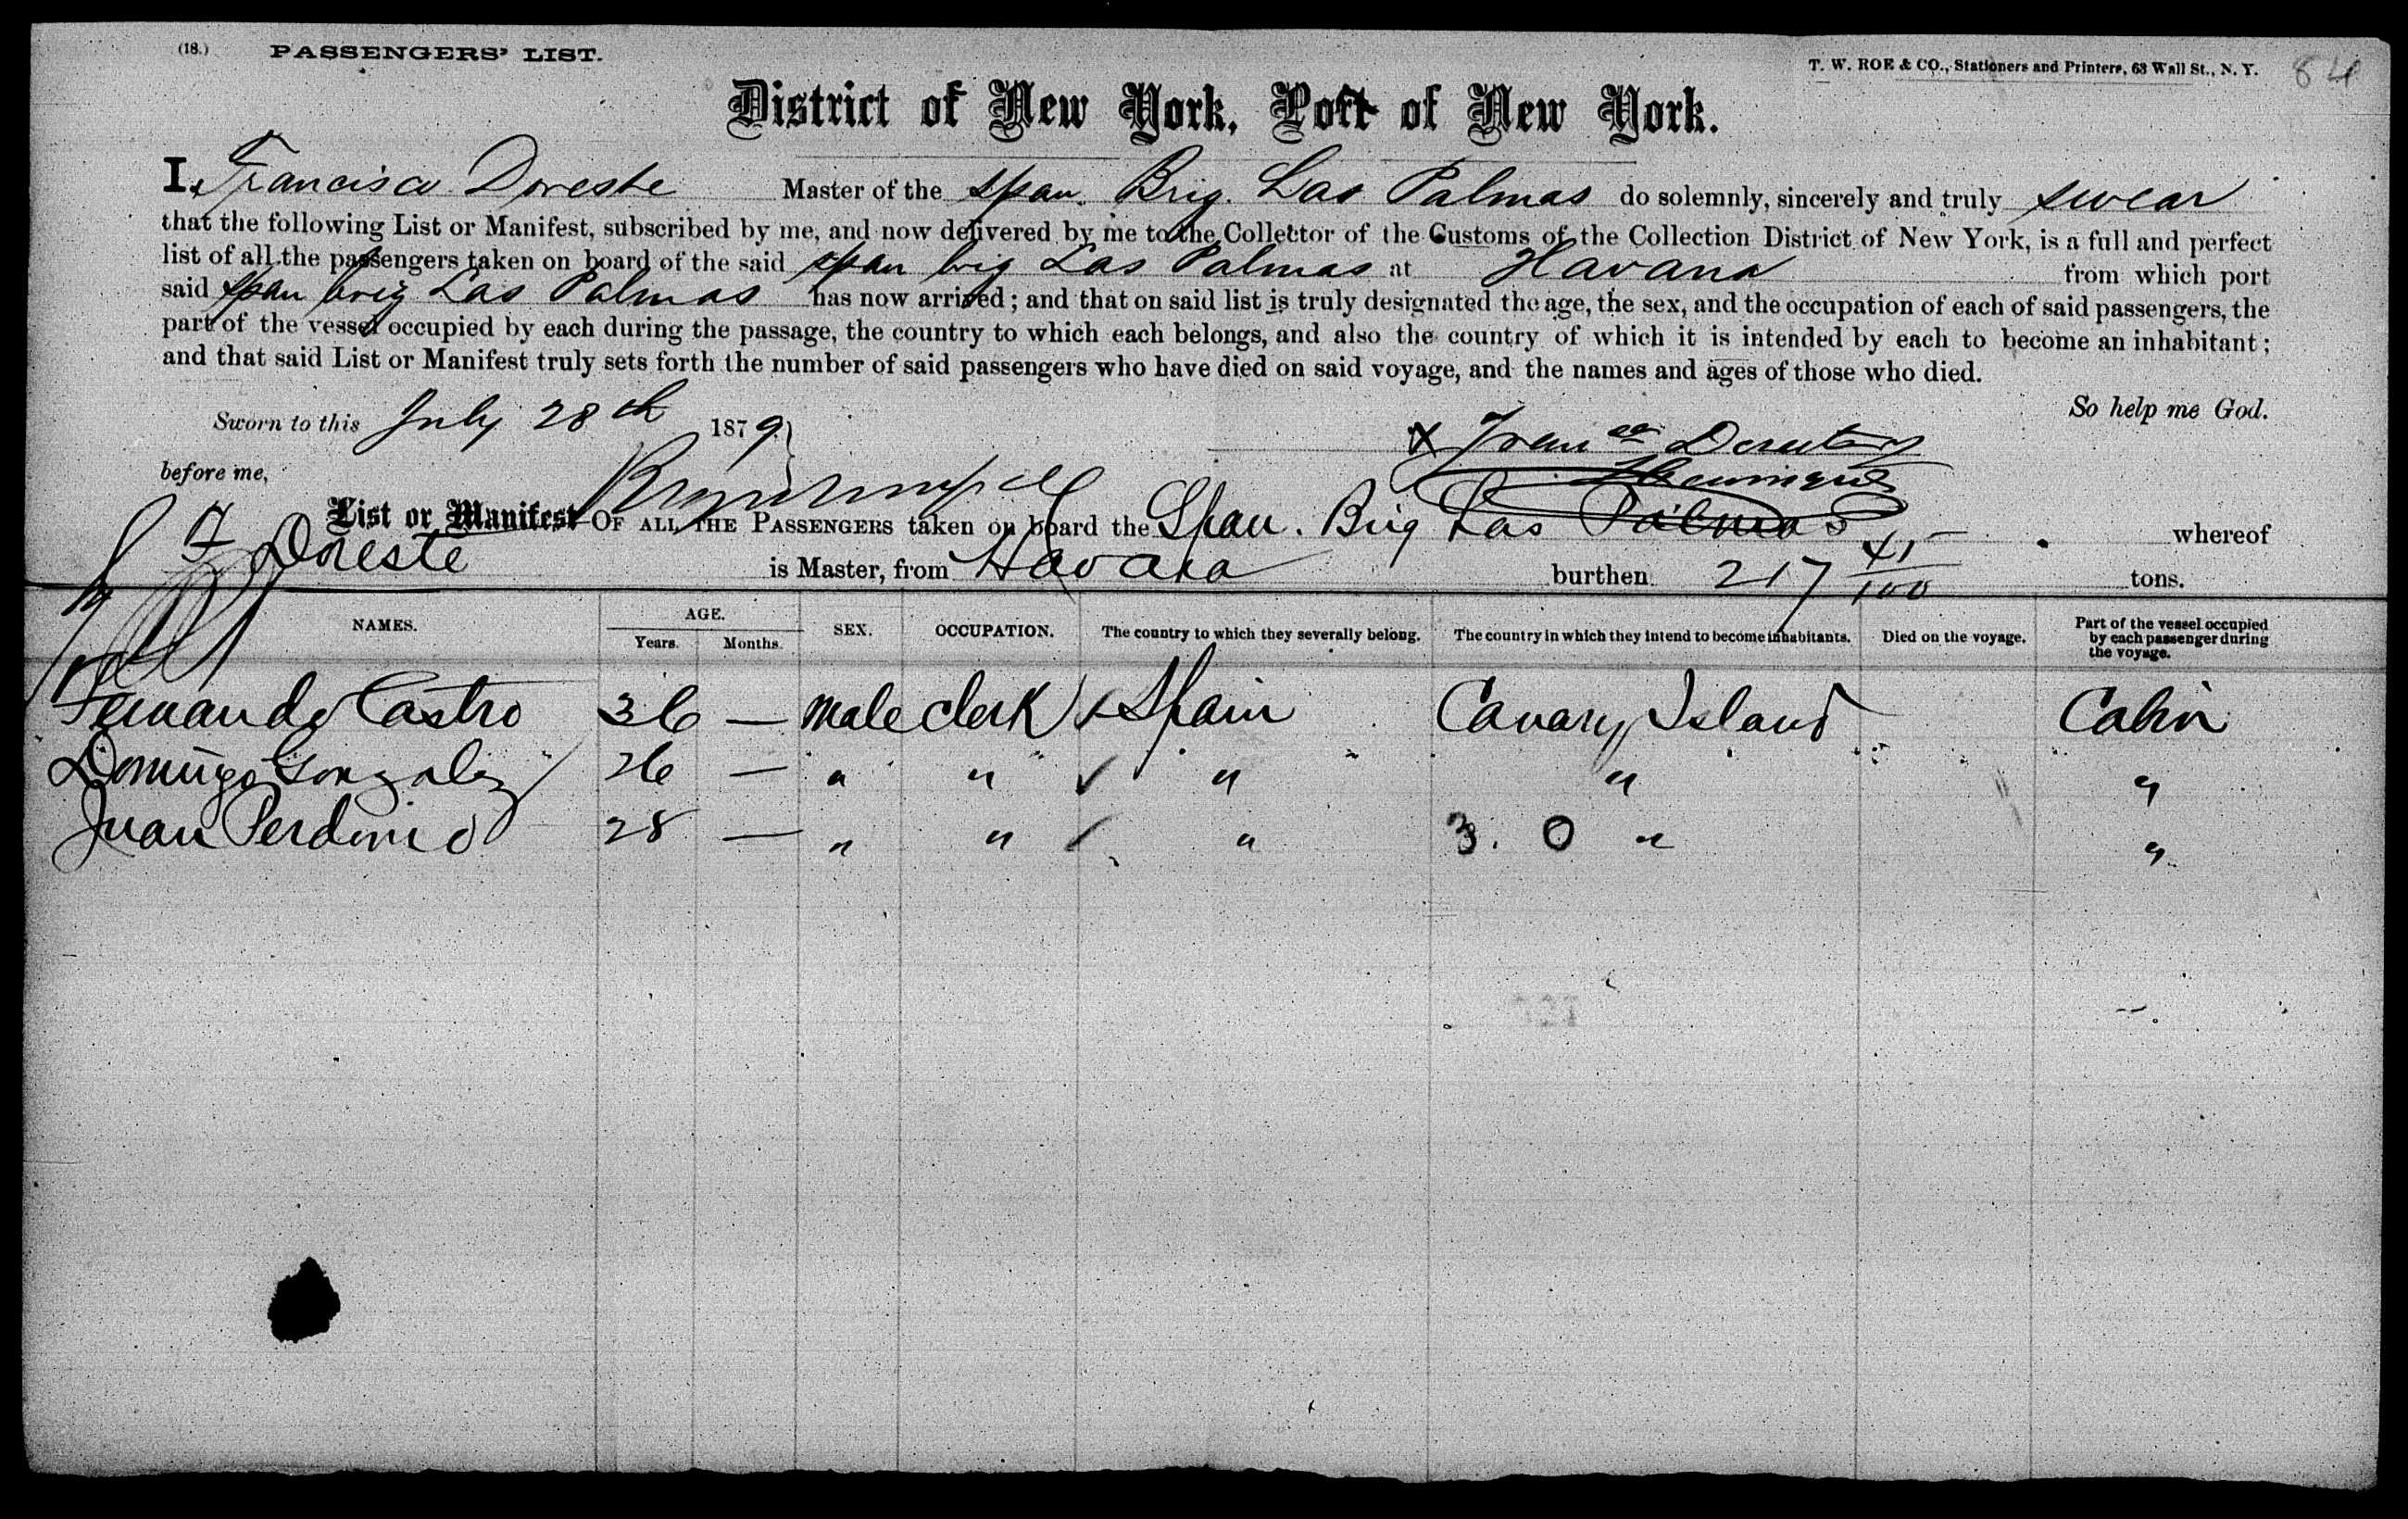 (18.) PASSENGERS' LIST. T. W. ROE & CO., Stationers and Printers, 63 Wall St., N. Y. 84
District of New York, Port of New York.
I, Francisco Doreste Master of the Span. Brig. Las Palmas do solemnly, sincerely and truly swear
that the following List or Manifest, subscribed by me, and now delivered by me to the Collector of the Customs of the Collection District of New York, is a full and perfect
list of all the passengers taken on board of the said span brig Las Palmas at Havana from which port
said span brig Las Palmas has now arrived; and that on said list is truly designated the age, the sex, and the occupation of each of said passengers, the
part of the vessel occupied by each during the passage, the country to which each belongs, and also the country of which it is intended by each to become an inhabitant;
and that said List or Manifest truly sets forth the number of said passengers who have died on said voyage, and the names and ages of those who died.
So help me God.
Sworn to this July 28th 1879
X Franco
before me,
List or Manifest OF ALL THE PASSENGERS taken on board the Span. Brig Las Palmas whereof
F Doreste is Master, from Havana burthen 217 41/100 tons.
NAMES. AGE. Years. Months. SEX. OCCUPATION. The country to which they severally belong. The country in which they intend to become inhabitants. Died on the voyage. Part of the vessel occupied by each passenger during the voyage.
Fernando Castro 36 — male clerk ✓ Spain Canary Island Cabin
Domingo Gonzalez 26 — " " ✓ " " "
Juan Perdomo 28 — " " ✓ " 3. 0 " "